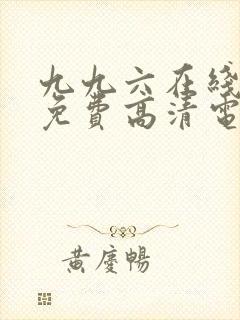 九九六在线
免费高清电
黄庆畅